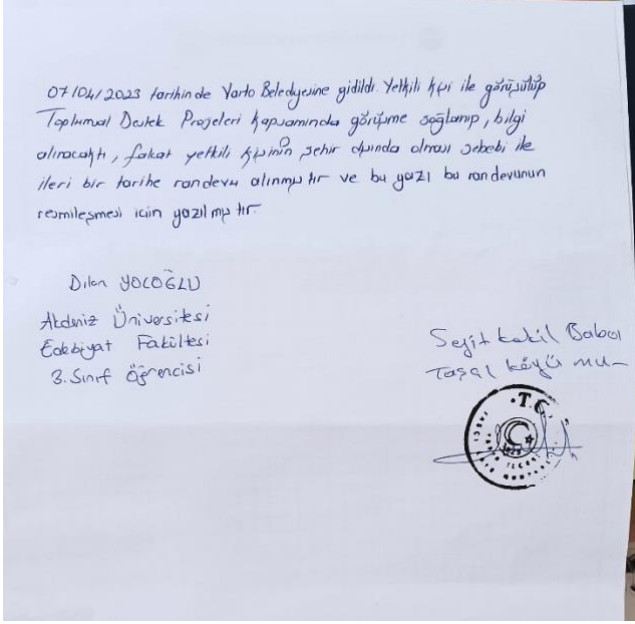 07/04/2023 tarihinde Varto Belediyesine gidildi. Yetkili kişi ile görüşülüp
Toplumsal Destek Projeleri kapsamında görüşme sağlanıp, bilgi
alınacaktı, fakat yetkili kişinin şehir dışında olması sebebi ile
ileri bir tarihe randevu alınmıştır ve bu yazı bu randevunun
resmileşmesi için yazılmıştır.
Dilan YOCOĞLU
Akdeniz Üniversitesi
Edebiyat Fakültesi
3. Sınıf Öğrencisi
Seyit Kekil Baba
Taşçı köyü mu
T.C.